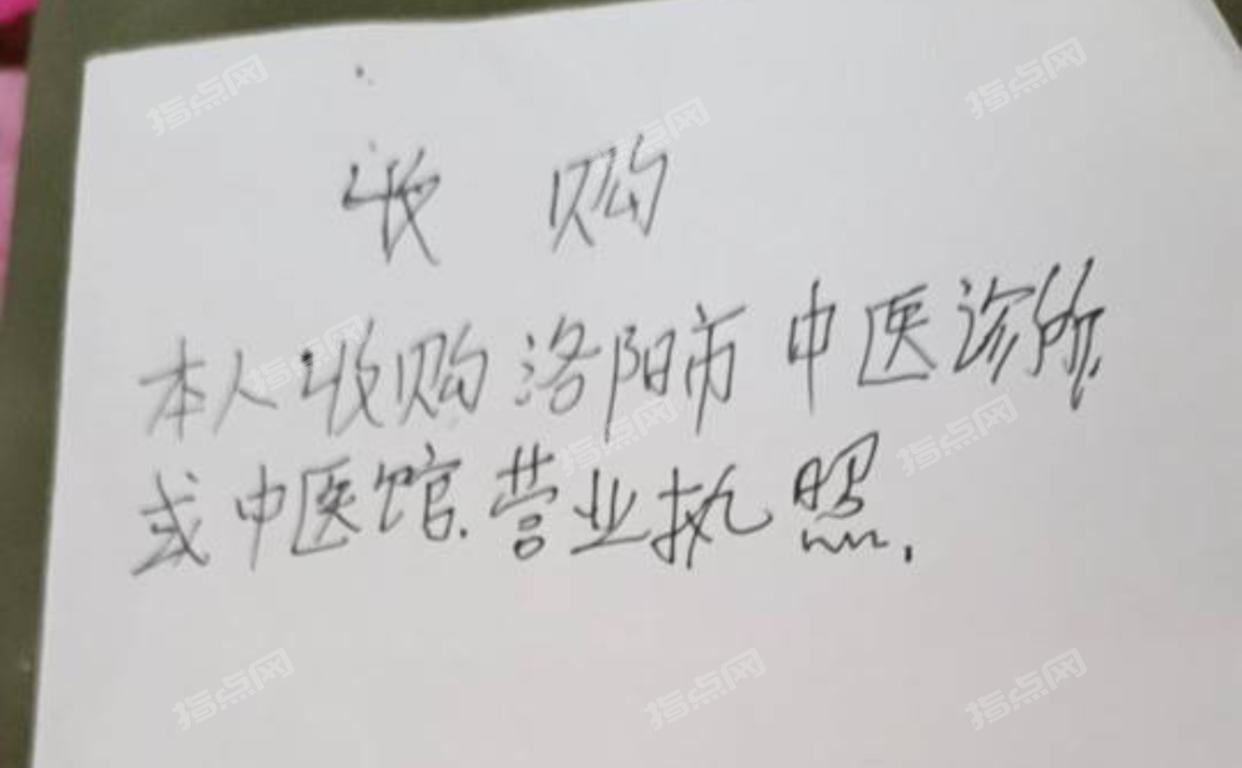 收购
本人收购洛阳市中医诊所
或中医馆.营业执照.
指点网
指点网
指点网
指点网
指点网
指点网
指点网
指点网
指点网